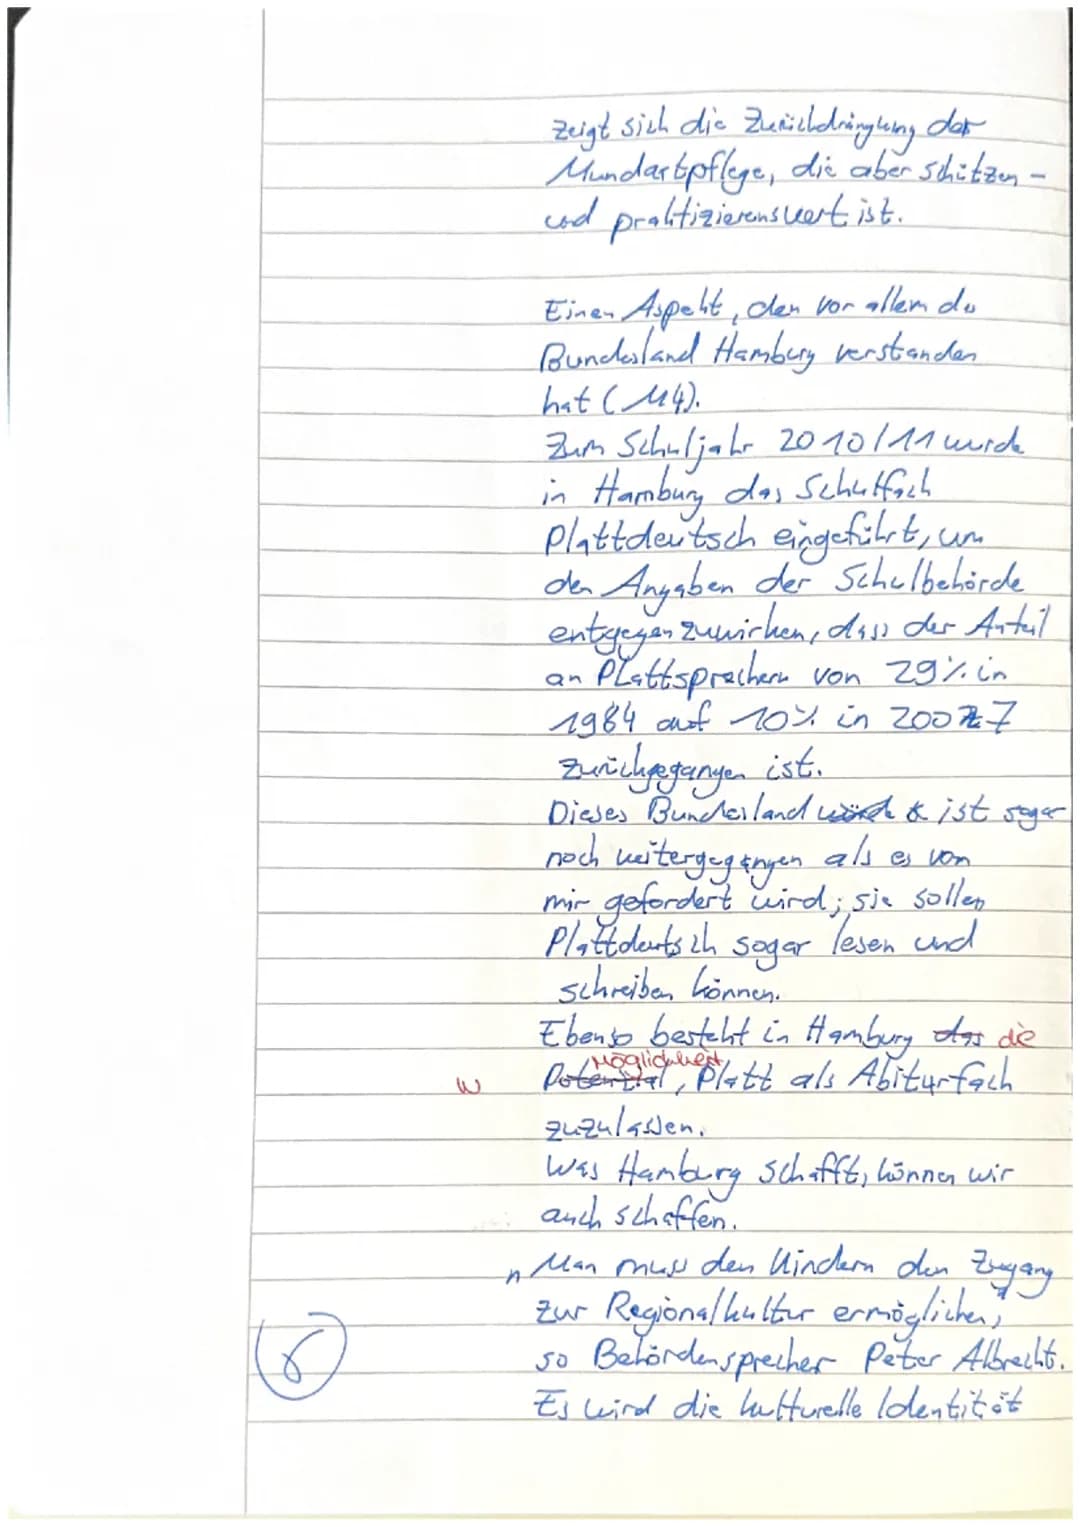 zeigt sich die Zurückdrängung der
Mundartpflege, die aber schützen-
und praktizierenswert ist.
Einen Aspekt, den vor allem das
Bundesland Hamburg verstanden
hat (M4).
Zum Schuljahr 2010/11 wurde
in Hamburg das Schulfach
Plattdeutsch eingeführt, um
den Angaben der Schulbehörde
entgegenzuwirken, dass der Anteil
an Plattsprechern von 29% in
1984 auf 10% in 2007
zurückgegangen ist.
Dieses Bundesland ist sogar
noch weitergegangen als es von
mir gefordert wird; sie sollen
Plattdeutsch sogar lesen und
schreiben können.
Ebenso besteht in Hamburg das die
Möglichkeit
W Potential, Platt als Abiturfach
zuzulassen.
Was Hamburg schafft, können wir
auch schaffen.
"Man muss den Kindern den Zugang
zur Regionalkultur ermöglichen,
so Behördensprecher Peter Albrecht.
6 Es wird die kulturelle Identität